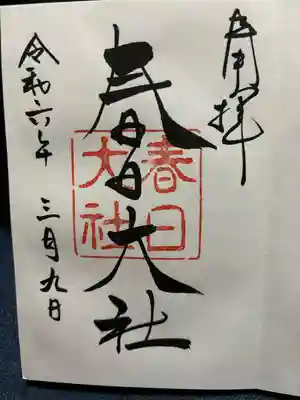 奉拝
春日大社
春日大社
令和六年 三月九日